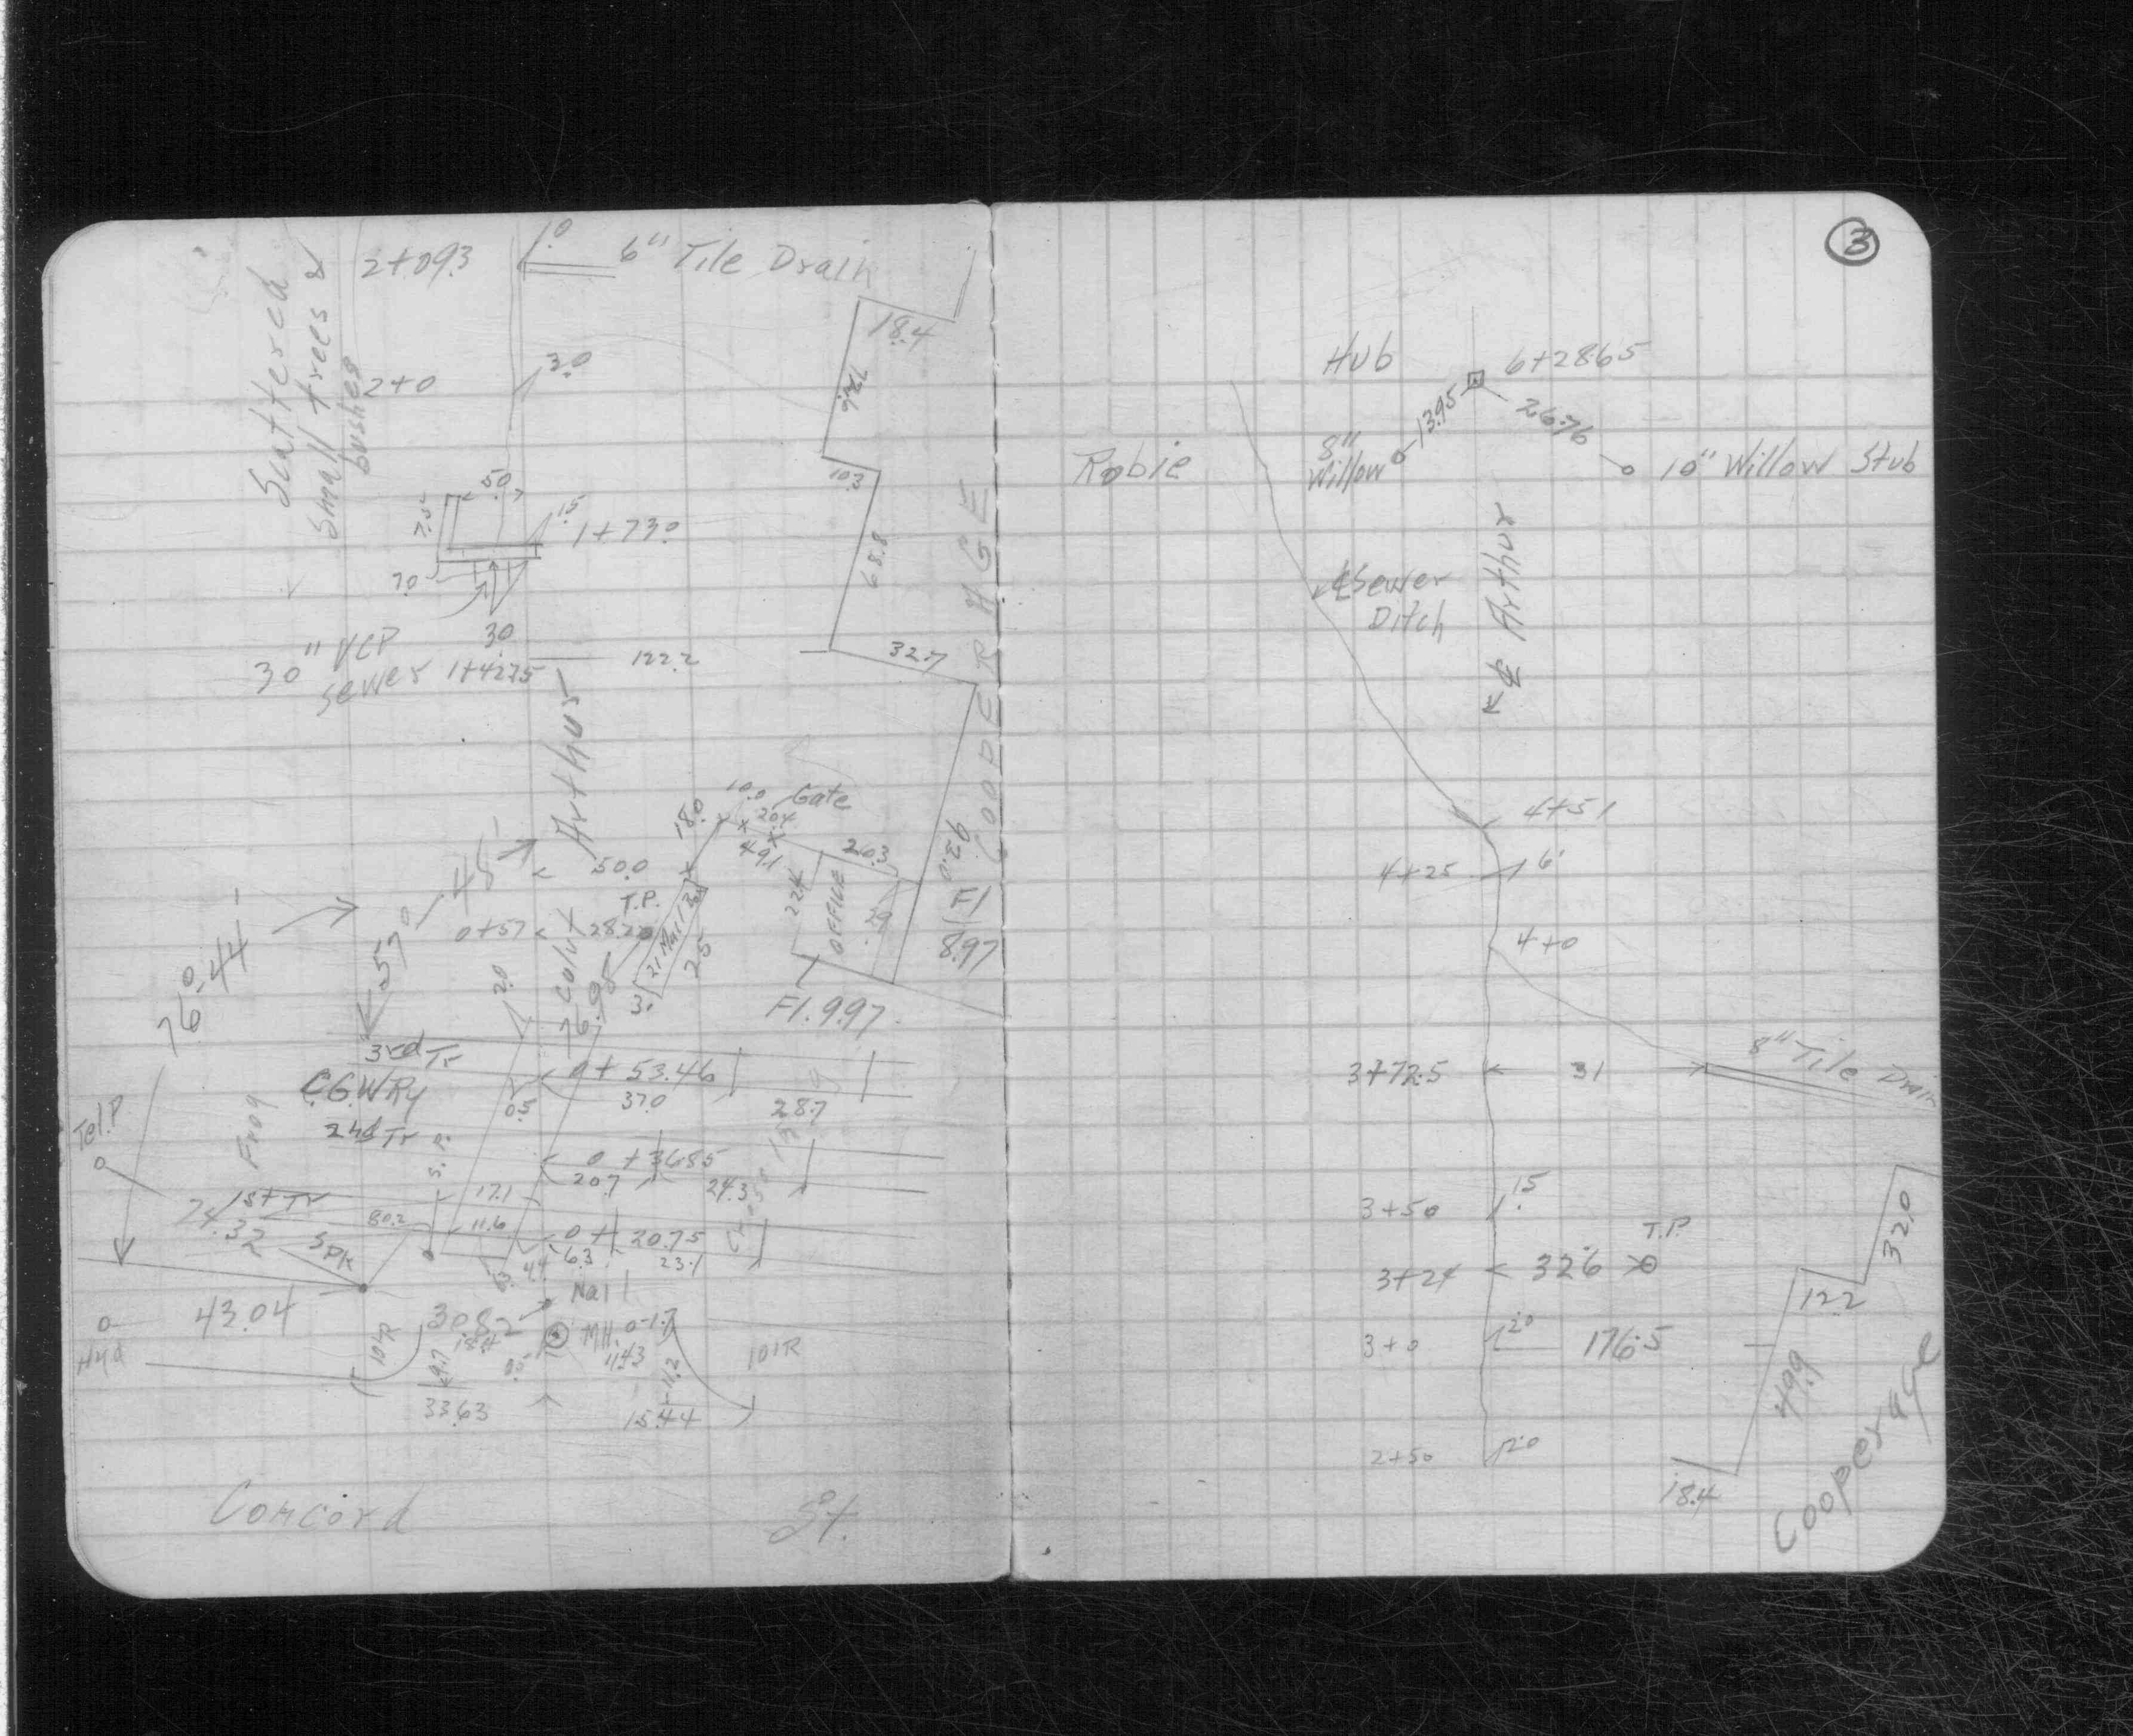 2+09.3
1.0
6" Tile Drain
Scattered
Small trees &
bushes
18.4
2+0
3.0
10.3
50
7.5
1.5
1+73.0
7.0
68.8
30" VCP
Sewer
30
1+42.75
122.2
32.7
COOPERAGE
Arthur
10.0
Gate
18.0
20.4
49.1
20.3
93.0
50.0
T.P.
0+57
28.20
22.4
OFFICE
29
Fl
8.97
25
3.
76.95
Fl. 9.97
57°-48'
76°-44'
2.0
3rd Tr
C.G.W Ry
0+53.46
37.0
0.5
28.7
Frog
2nd Tr
Tel. P
0+36.85
20.7
24.3
1st Tr
24.32
17.1
80.2
11.6
0+20.75
6.3
23.1
4.4
Spk
Nail
43.04
30.82
18.4
MH.
0-1.7
4.43
Hyd
101R
101R
9.7
11.2
33.63
15.44
Concord St.
3
Hub
6+28.65
13.95
26.76
Robie
8"
Willow
10" Willow Stub
℄ Sewer
Ditch
℄ Arthur
4+51
4+25
6'
4+0
8" Tile Drain
3+72.5
31
3+50
1.5
T.P.
3+24
32.6
32.0
12.2
3+0
2.0
176.5
49.9
2+50
2.0
18.4
Cooperage